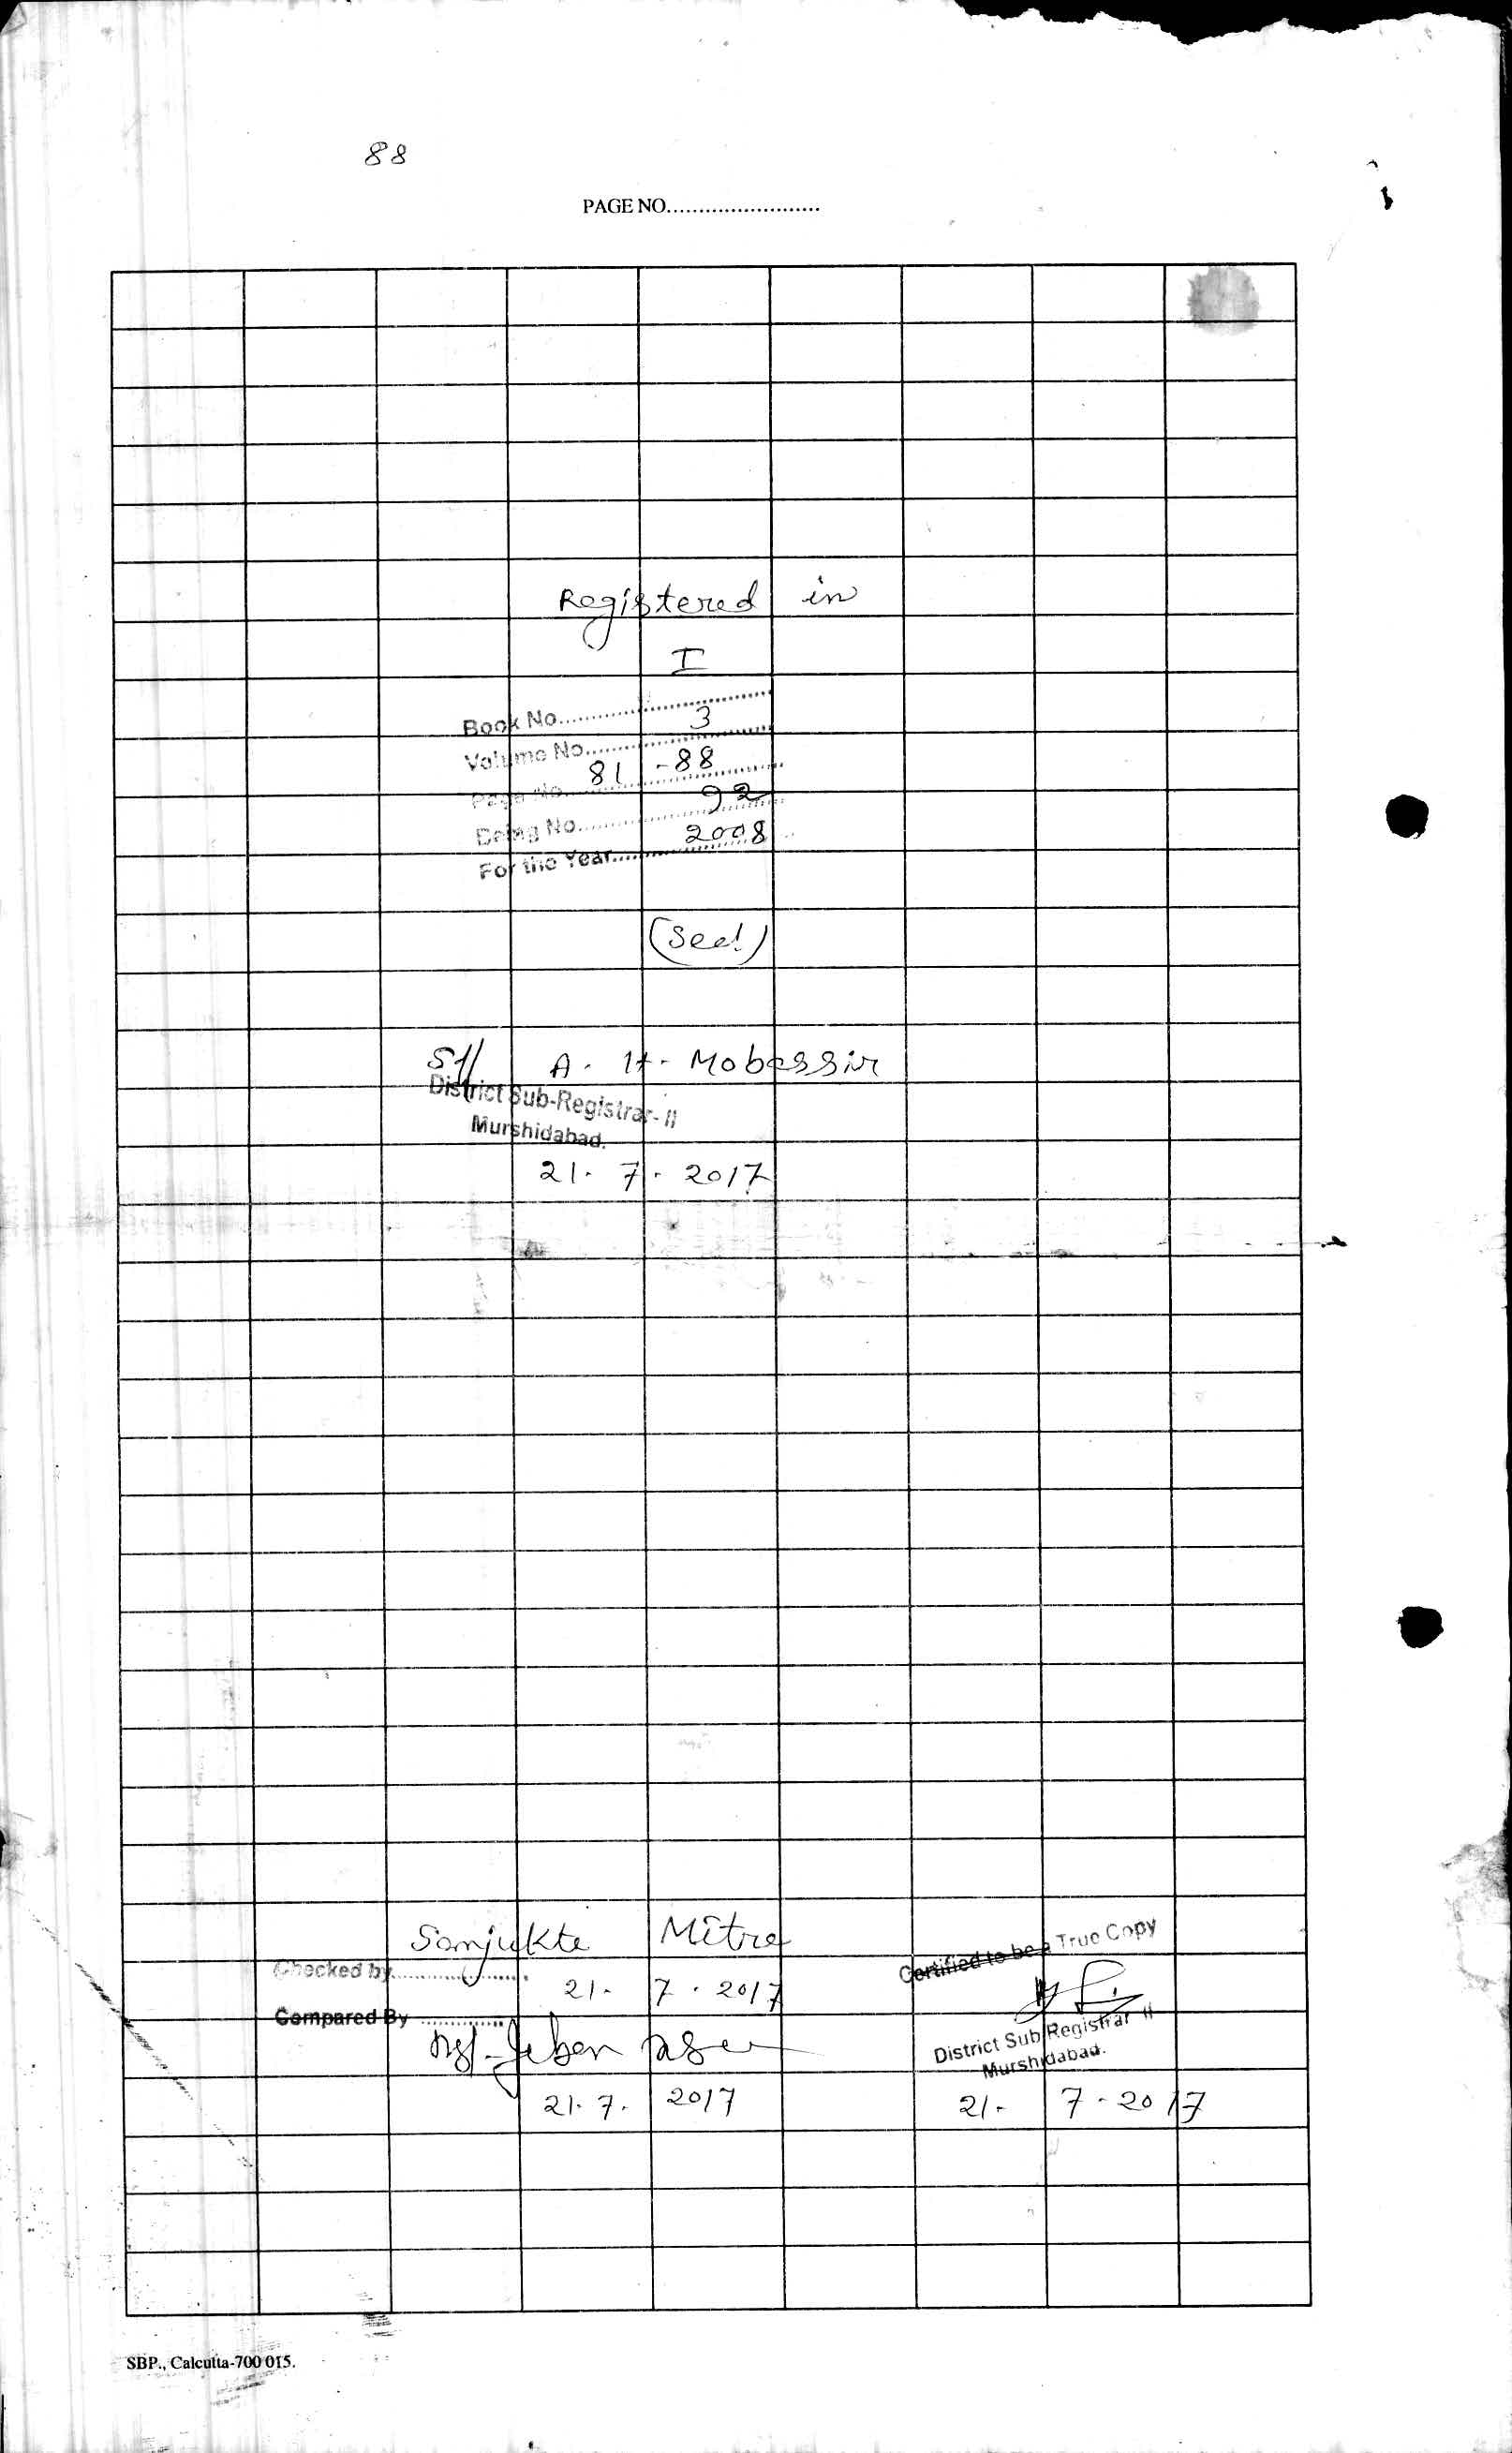 88
PAGE NO........................
Registered in
I
Book No..............................
3
Volume No..........................
81 - 88
Page No..............................
92
Being No............................
2008
For the Year......................
(Seal)
Sd/ A. H. Mobassir
District Sub-Registrar-II
Murshidabad.
21. 7. 2017
Sanjukta Mitra
Checked by....................
21. 7. 2017
Compared By ..............
21. 7. 2017
Certified to be a True Copy
District Sub Registrar II
Murshidabad.
21. 7. 2017
SBP., Calcutta-700 015.